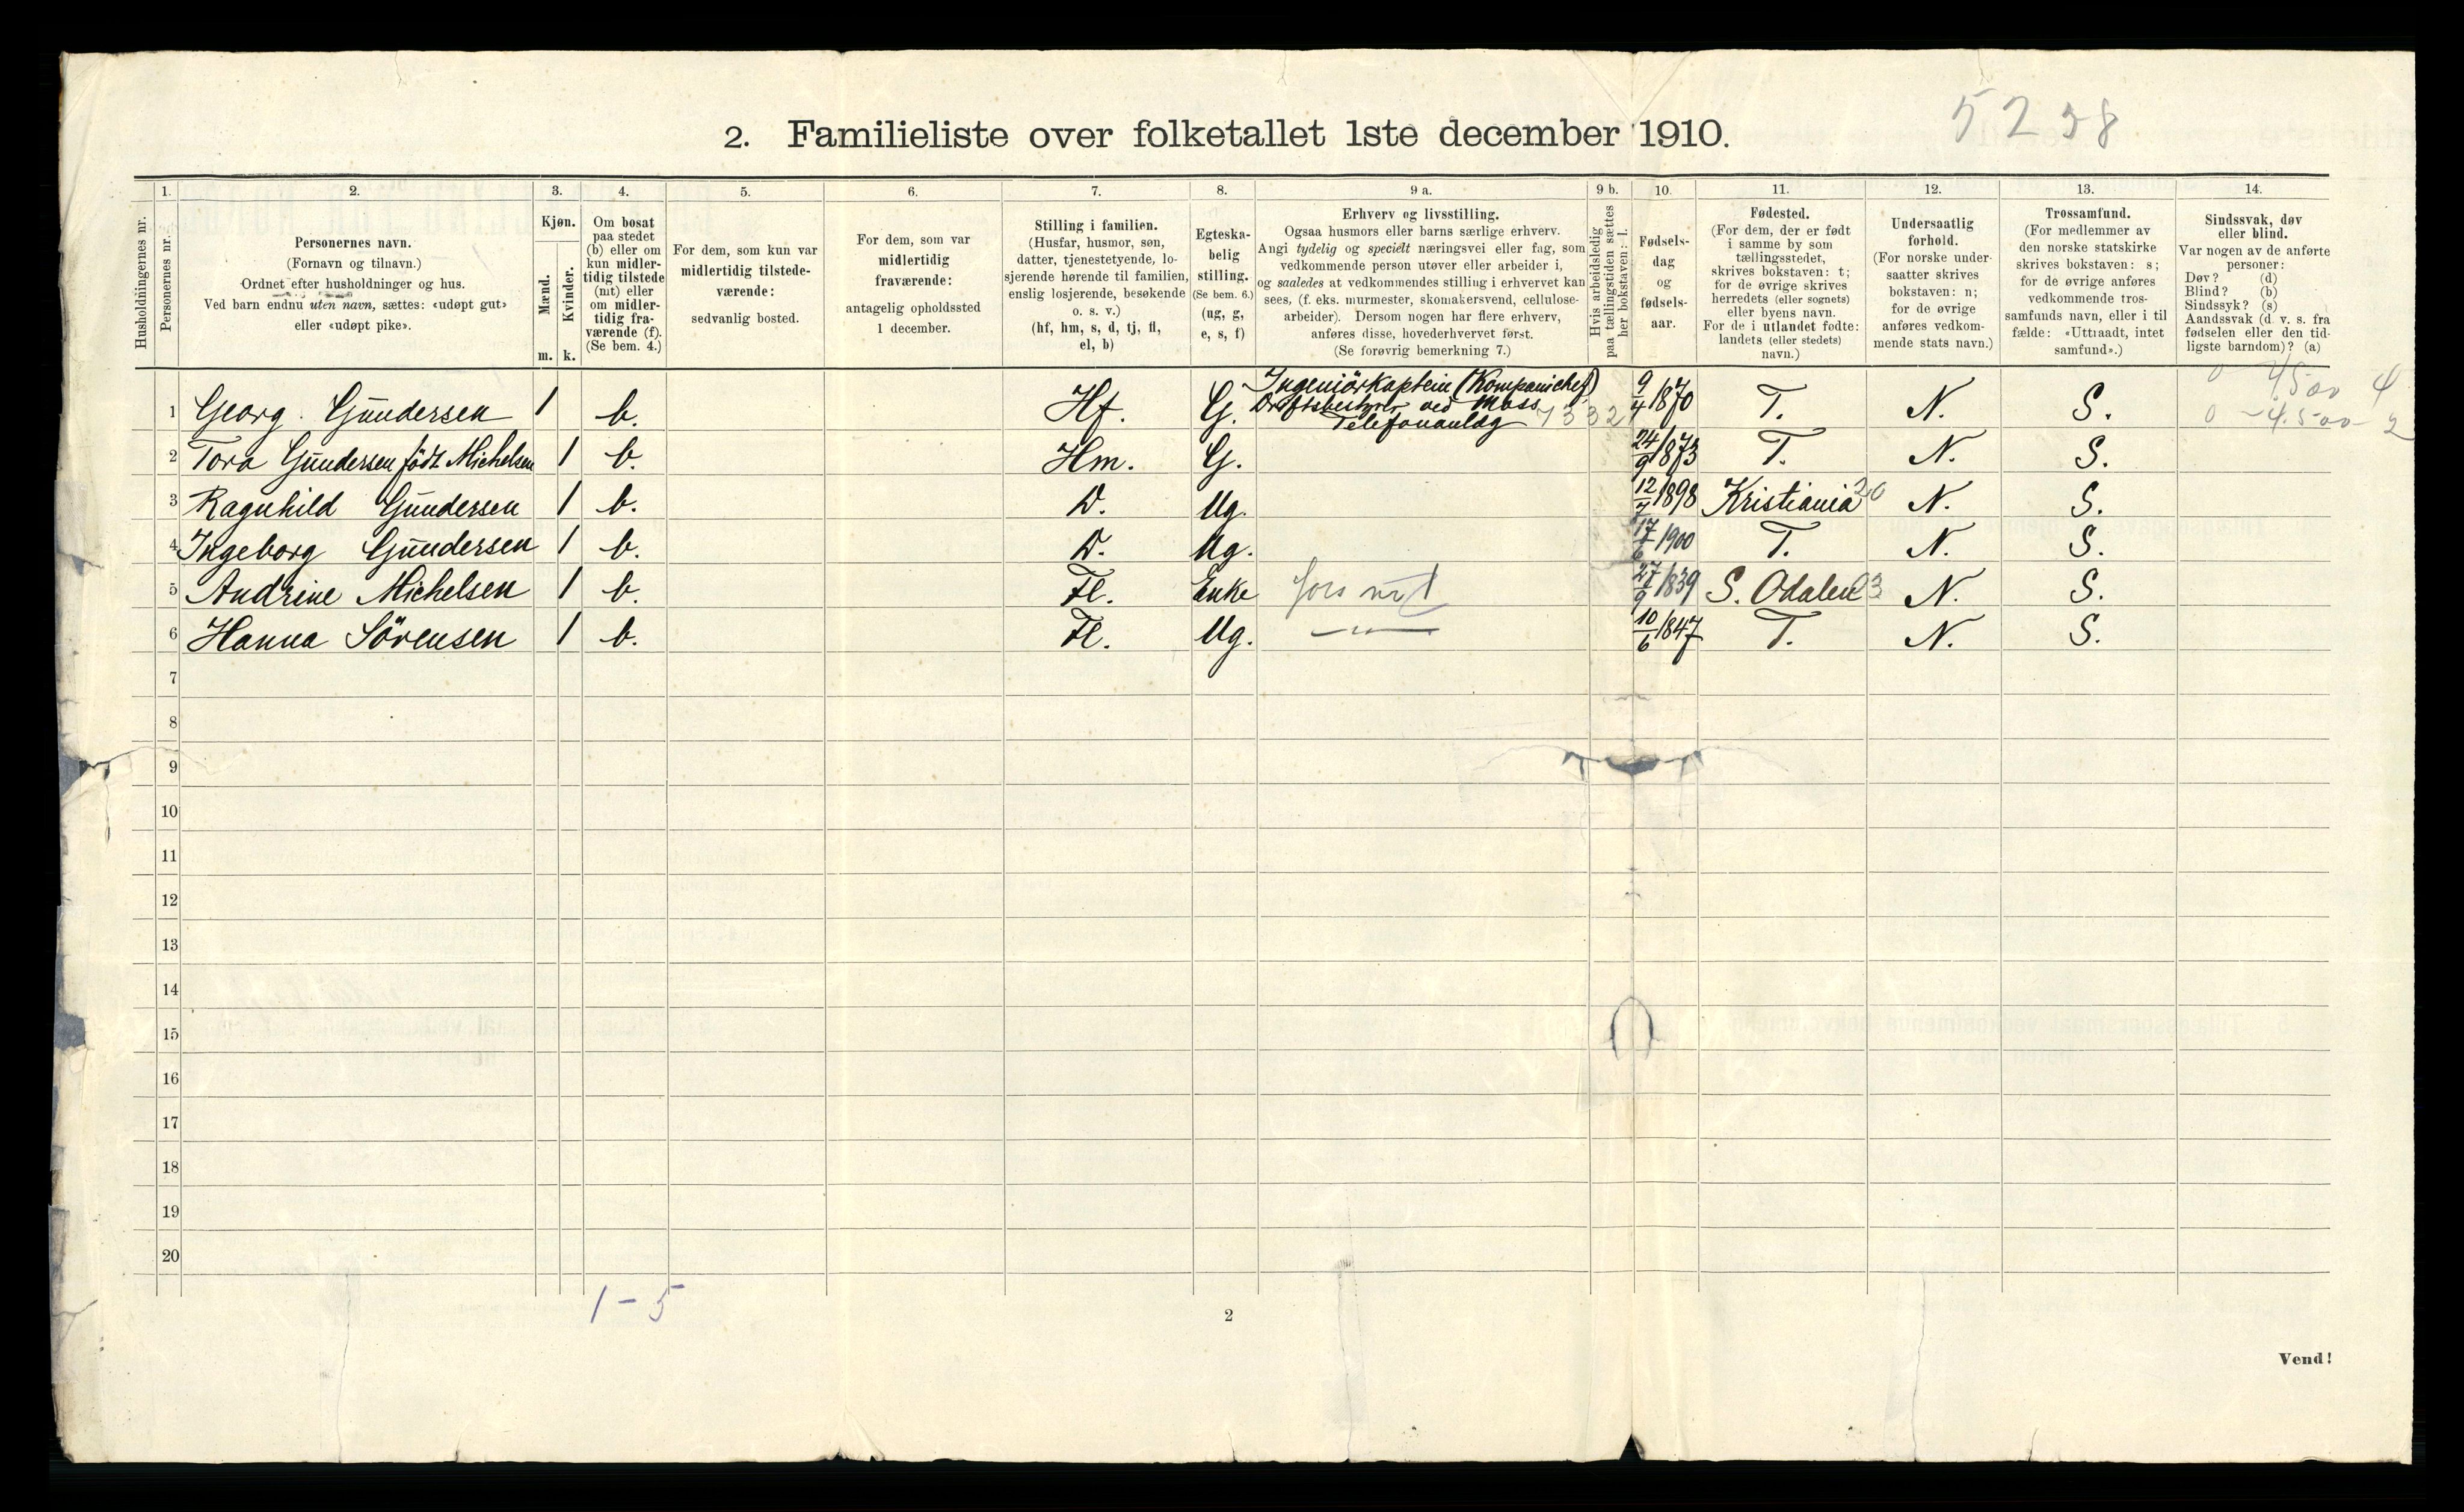 5238
2. Familieliste over folketallet 1ste december 1910.
Husholdningernes nr.
1.
Personernes nr.
2.
Personernes navn.
(Fornavn og tilnavn.)
Ordnet efter husholdninger og hus.
Ved barn endnu uten navn, sættes: «udøpt gut»
eller «udøpt pike».
3.
Kjøn.
Mænd.
Kvinder.
m.
k.
4.
Om bosat
paa stedet
(b) eller om
kun midler-
tidig tilstede
(mt) eller
om midler-
tidig fra-
værende (f).
(Se bem. 4.)
5.
For dem, som kun var
midlertidig tilstede-
værende:
sedvanlig bosted.
6.
For dem, som var
midlertidig
fraværende:
antagelig opholdssted
1 december.
7.
Stilling i familien.
(Husfar, husmor, søn,
datter, tjenestetyende, lo-
sjerende hørende til familien,
enslig losjerende, besøkende
o. s. v.)
(hf, hm, s, d, tj, fl,
el, b)
8.
Egteska-
belig
stilling.
(Se bem. 6.)
(ug, g,
e, s, f)
9 a.
Erhverv og livsstilling.
Ogsaa husmors eller barns særlige erhverv.
Angi tydelig og specielt næringsvei eller fag, som
vedkommende person utøver eller arbeider i,
og saaledes at vedkommendes stilling i erhvervet kan
sees, (f. eks. murmester, skomakersvend, cellulose-
arbeider). Dersom nogen har flere erhverv,
anføres disse, hovederhvervet først.
(Se forøvrig bemerkning 7.)
9 b.
Hvis arbeidsledig
paa tællingstiden sættes
her bokstaven: l.
10.
Fødsels-
dag
og
fødsels-
aar.
11.
Fødested.
(For dem, der er født
i samme by som
tællingsstedet,
skrives bokstaven: t;
for de øvrige skrives
herredets (eller sognets)
eller byens navn.
For de i utlandet fødte:
landets (eller stedets)
navn.)
12.
Undersaatlig
forhold.
(For norske under-
saatter skrives
bokstaven: n;
for de øvrige
anføres vedkom-
mende stats navn.)
13.
Trossamfund.
(For medlemmer av
den norske statskirke
skrives bokstaven: s;
for de øvrige anføres
vedkommende tros-
samfunds navn, eller i til
fælde: «Uttraadt, intet
samfund».)
14.
Sindssvak, døv
eller blind.
Var nogen av de anførte
personer:
Døv? (d)
Blind? (b)
Sindssyk? (s)
Aandssvak (d. v. s. fra
fødselen eller den tid-
ligste barndom)? (a)
0 4500 4
0 - 4.500 - 2
1 Georg. Gundersen 1 b. Hf. G. Ingeniörkaptein (Kompanichef)
Driftsbestyrer ved Moss
Telefonanlæg 7332 9/4 1870 T. N. S.
2 Tora Gundersen födt Michelsen 1 b. Hm. G. 24/9 1873 T. N. S.
3 Ragnhild Gundersen 1 b. D. Ug. 12/7 1898 Kristiania 20 N. S.
4 Ingeborg Gundersen 1 b. D. Ug. 17/6 1900 T. N. S.
5 Andrine Michelsen 1 b. Fl. Enke 27/9 1839 S. Odalen 03 N. S.
6 Hanna Sörensen 1 b. Fl. Ug. —"— 10/6 1847 T. N. S.
7
8
9
10
11
12
13
14
15
16
17
18
19
20
1 - 5
2
Vend!